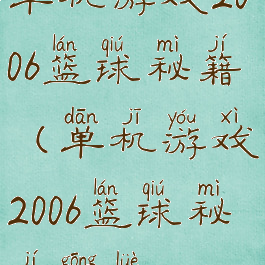 单机游戏20
lán qiú mì jí
06篮球秘籍
dān jī yóu xì
(单机游戏
lán qiú mì
2006篮球秘
jí gōng lüè